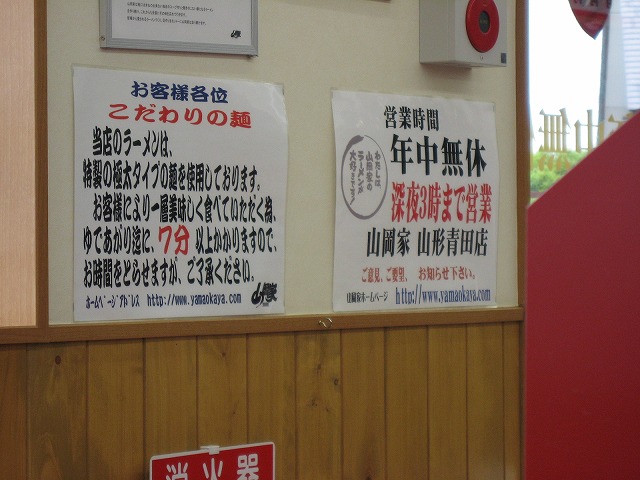 お客様各位
こだわりの麺
当店のラーメンは、
特製の極太タイプの麺を使用しております。
お客様により一層美味しく食べていただく為、
ゆであがり迄に、7分以上かかりますので、
お時間をとらせますが、ご了承ください。
ホームページアドレス http://www.yamaokaya.com
山岡家
営業時間
年中無休
深夜3時まで営業
山岡家 山形青田店
ご意見、ご要望、 お知らせ下さい。
山岡家ホームページ http://www.yamaokaya.com
わたしは
山岡家の
ラーメンが
大好きです!
消火器